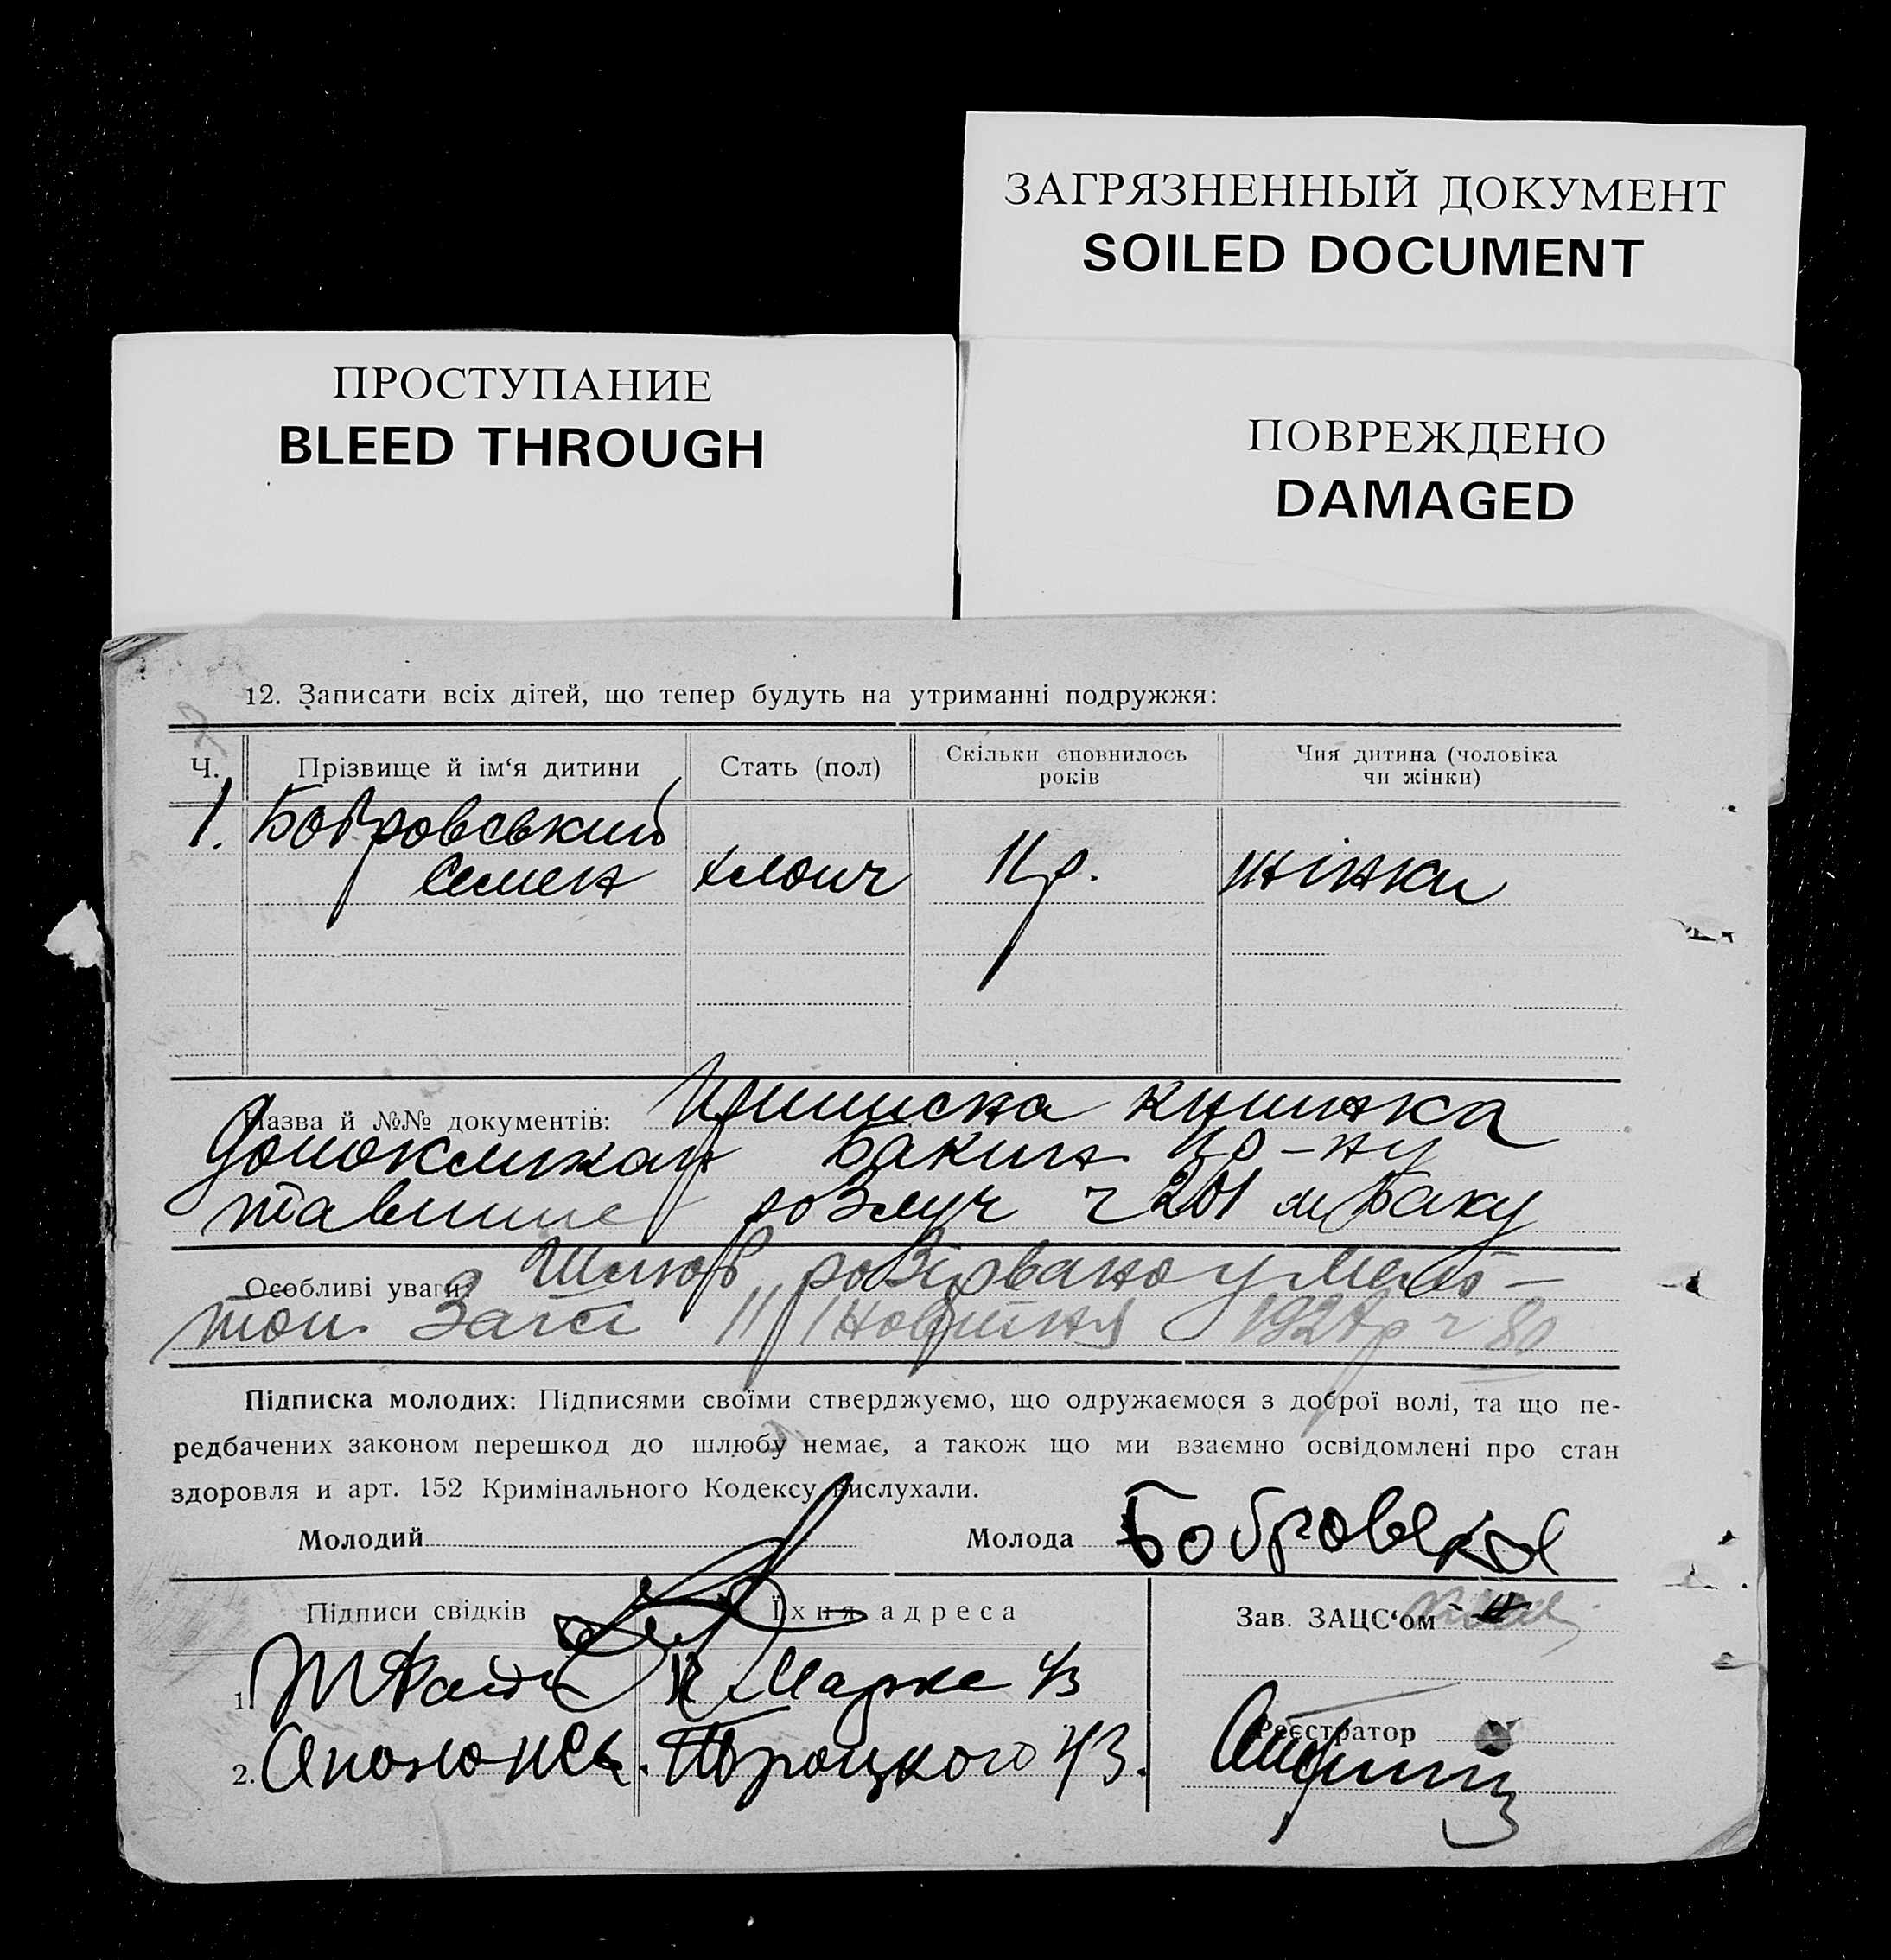 ЗАГРЯЗНЕННЫЙ ДОКУМЕНТ
SOILED DOCUMENT
ПРОСТУПАНИЕ
BLEED THROUGH
ПОВРЕЖДЕНО
DAMAGED
12. Записати всіх дітей, що тепер будуть на утриманні подружжя:
Ч. Прізвище й ім‘я дитини Стать (пол) Скільки сповнилось років Чия дитина (чоловіка чи жінки)
1. Бобровський
Семен хлопч 11 р. жінки
Назва й №№ документів: книжка
р-ну
розлуч ч 201 м Баку
Особливі уваги: Шлюб розірвано у Мелі-
топ. Загсі 11/ жовтня 1927 р ч 80
Підписка молодих: Підписями своїми стверджуємо, що одружаємося з доброї волі, та що пе-
редбачених законом перешкод до шлюбу немає, а також що ми взаємно освідомлені про стан
здоровля и арт. 152 Кримінального Кодексу вислухали.
Молодий Молода Бобровская
Підписи свідків Їхня адреса Зав. ЗАЦС‘ом
1. К Маркса 43
2. Троцкого 43. Реєстратор